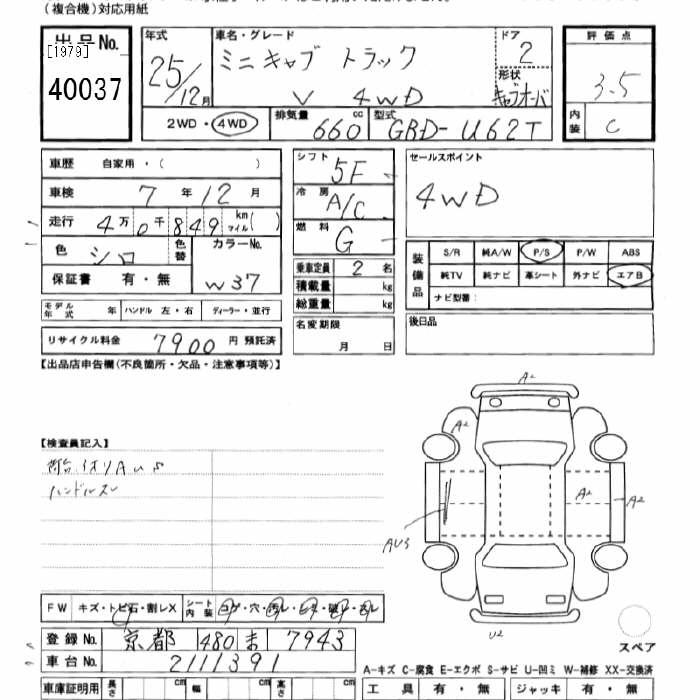 (複合機)対応用紙
出品No.
[1979]
40037
年式
25/12月
車名・グレード
ミニキャブ トラック
V 4WD
ドア
2
形状
キャブオーバ
評価点
3.5
内装
C
2WD・4WD
排気量
660 cc
型式
GBD-U62T
車歴 自家用・( )
車検 7年 12月
走行 4万0千849 km マイル( )
色 シロ
色替
カラーNo.
W37
保証書 有・無
モデル年式 年
ハンドル 左・右
ディーラー・並行
リサイクル料金 7900円 預託済
シフト 5F
冷房 A/C
燃料 G
乗車定員 2名
積載量 kg
総重量 kg
名変期限
月 日
セールスポイント
4WD
装備品
S/R 純A/W P/S P/W ABS
純TV 純ナビ 革シート 外ナビ エアB
ナビ型番:
後日品
【出品店申告欄(不良箇所・欠品・注意事項等)】
【検査員記入】
ハンドルスレ
FW キズ・トビ石・割レX
シート内装 コゲ・穴・汚レ・
登録No. 京都 480 ま 7943
車台No. 2111391
車庫証明用
長さ cm
幅 cm
高さ cm
A2
A2
A2
A2
AU3
U2
スペア
A-キズ C-腐食 E-エクボ S-サビ U-凹ミ W-補修 XX-交換済
工具 有・無
ジャッキ 有・無